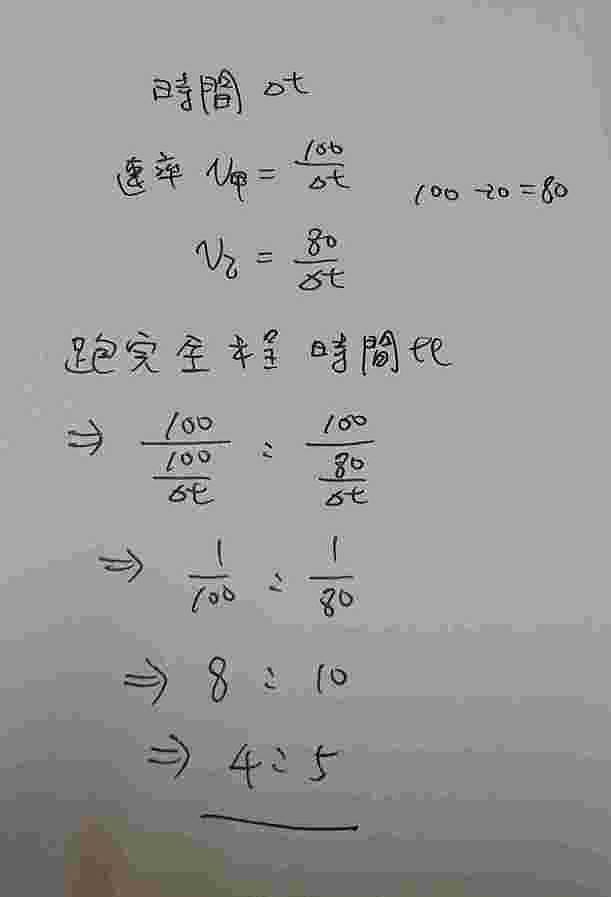 時間 Δt
速率 V甲 = 100/Δt
100-20=80
V乙 = 80/Δt
跑完全程時間比
⇒ 100/(100/Δt) : 100/(80/Δt)
⇒ 1/100 : 1/80
⇒ 8 : 10
⇒ 4 : 5